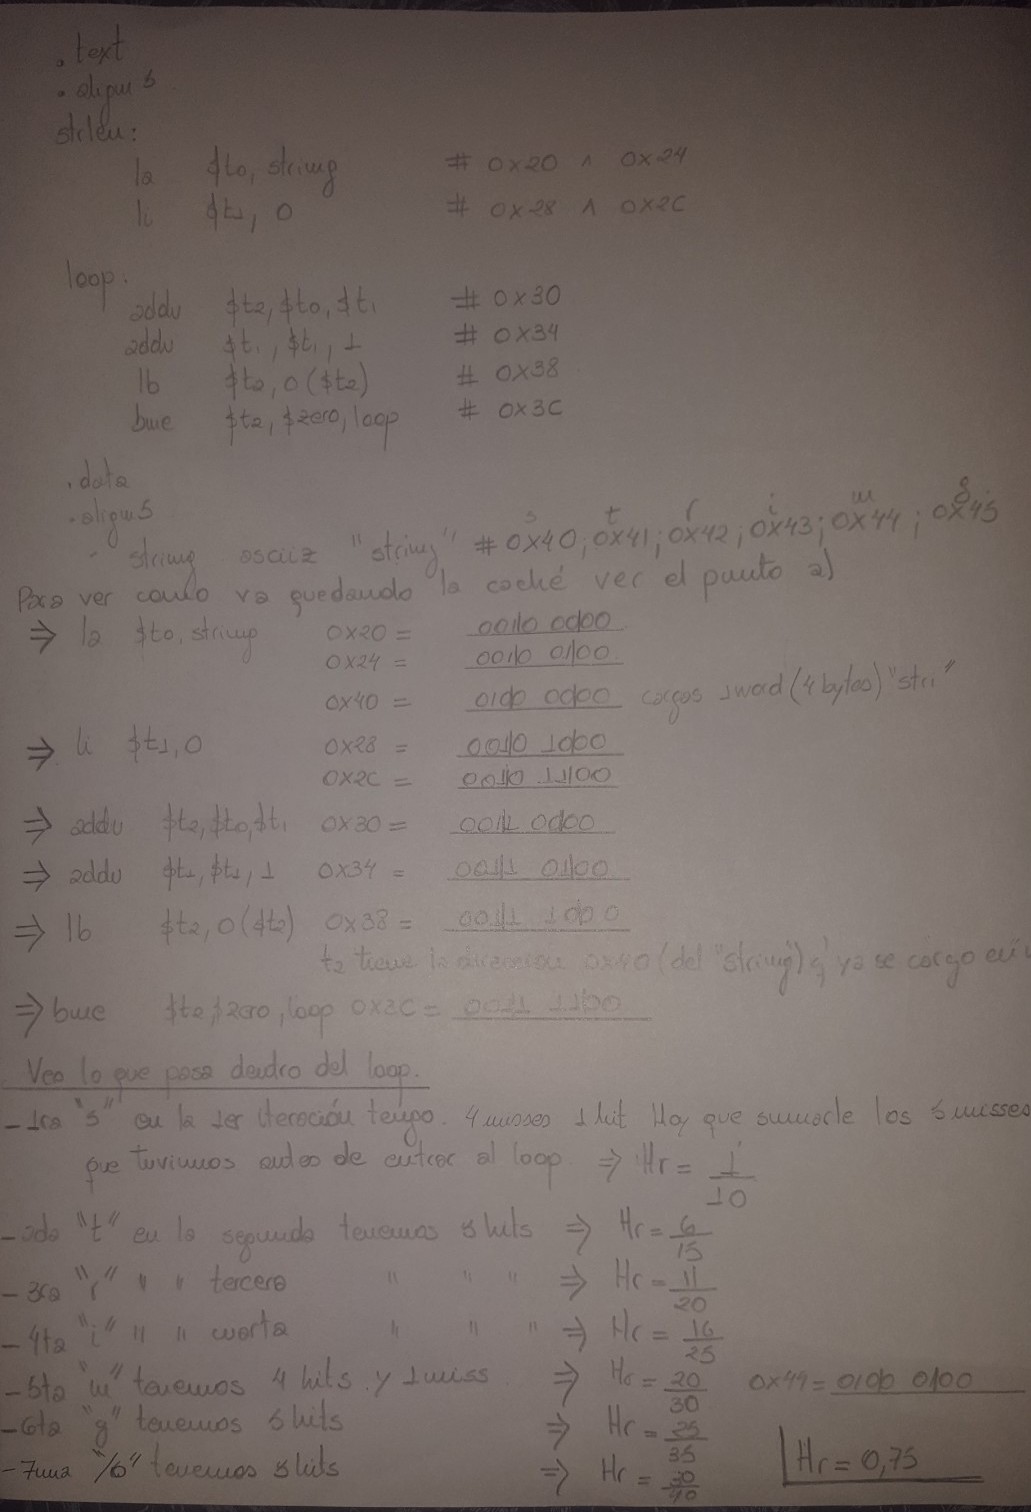 .text
.align 5
strlen:
la $t0, string # 0x20 ∧ 0x24
li $t1, 0 # 0x28 ∧ 0x2C
loop:
addu $t2, $t0, $t1 # 0x30
addu $t1, $t1, 1 # 0x34
lb $t2, 0($t2) # 0x38
bne $t2, $zero, loop # 0x3C
.data
.align 5
s t r i n g
string asciiz "string" # 0x40; 0x41; 0x42; 0x43; 0x44; 0x45
Para ver como va quedando la caché ver el punto a)
⇒ la $t0, string 0x20 = 0010 0000
0x24 = 0010 0100
0x40 = 0100 0000 cargas 1 word (4 bytes) "stri"
⇒ li $t1, 0 0x28 = 0010 1000
0x2C = 0010 1100
⇒ addu $t2, $t0, $t1 0x30 = 0011 0000
⇒ addu $t1, $t1, 1 0x34 = 0011 0100
⇒ lb $t2, 0($t2) 0x38 = 0011 1000
t2 tiene la dirección 0x40 (del "string") q' ya se cargo
⇒ bne $t2, $zero, loop 0x3C = 0011 1100
Veo lo que pasa dentro del loop.
- 1ra "s" en la 1er iteración tengo. 4 misses 1 hit Hay que sumarle los 5 misses
que tuvimos antes de entrar al loop ⇒ Hr = 1/10
- 2da "t" en la segunda tenemos 5 hits ⇒ Hr = 6/15
- 3ra "r" " " tercera " " " ⇒ Hr = 11/20
- 4ta "i" " " cuarta " " " ⇒ Hr = 16/25
- 5ta "n" tenemos 4 hits y 1 miss ⇒ Hr = 20/30 0x44 = 0100 0100
- 6ta "g" tenemos 5 hits ⇒ Hr = 25/35
- 7ima "/0" tenemos 5 hits ⇒ Hr = 30/40 Hr = 0,75